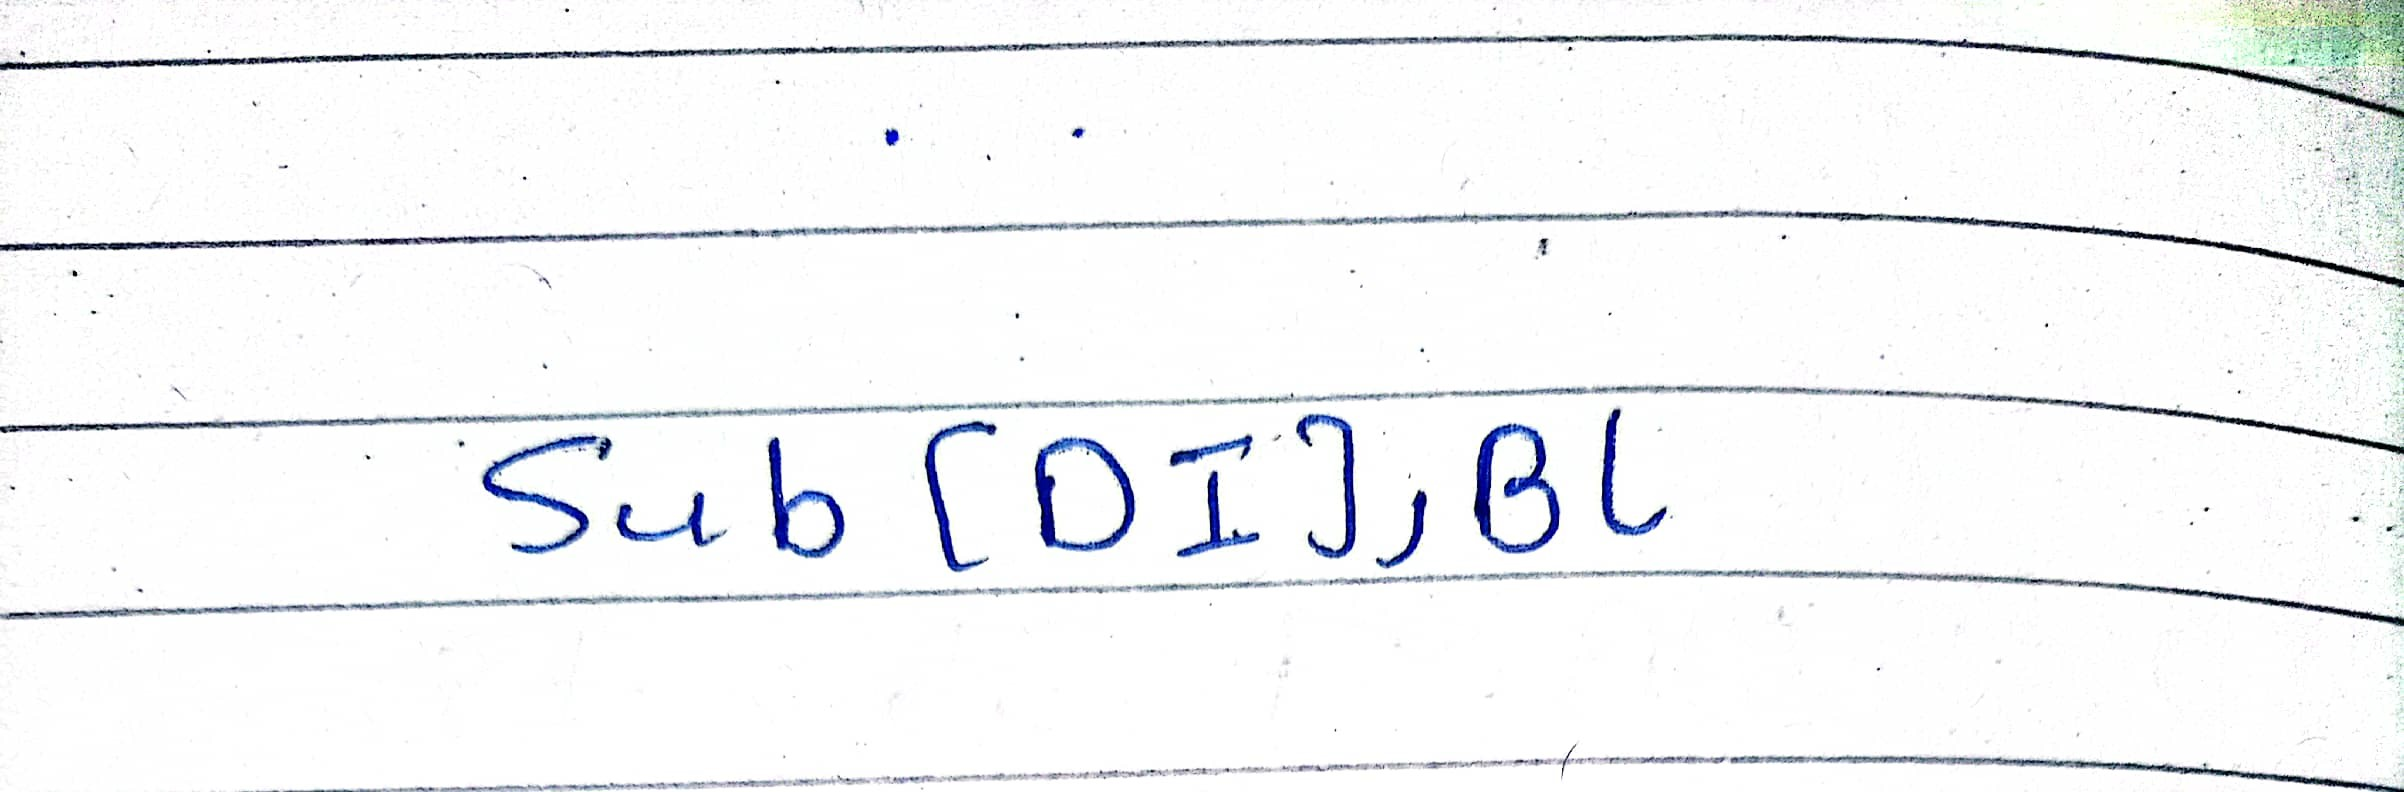 Sub [DI], Bl